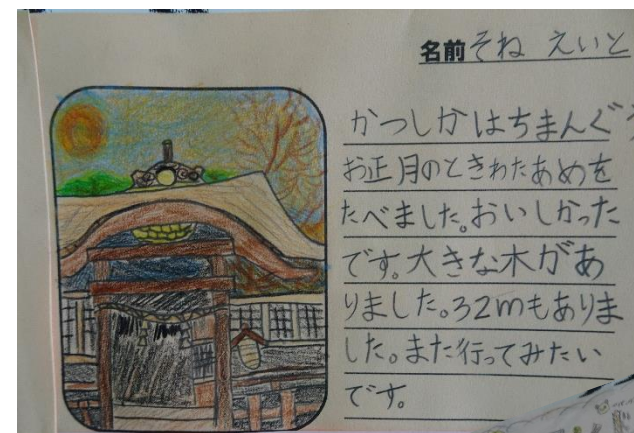 名前 そね えいと
かつしかはちまんぐう
お正月のときわたあめを
たべました。おいしかった
です。大きな木があ
りました。32mもありま
した。また行ってみたい
です。